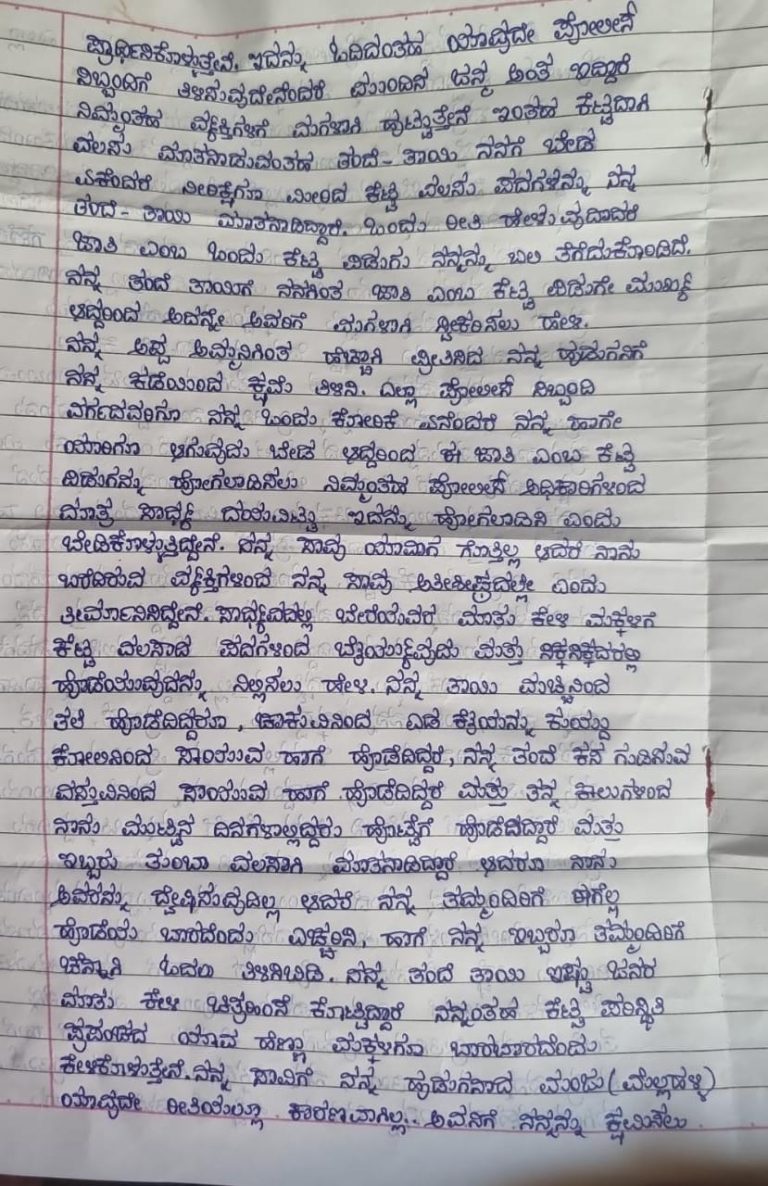 ಪ್ರಾರ್ಥಿಸಿಕೊಳ್ಳುತ್ತೇನೆ. ಇದನ್ನು ಓದಿದಂತಹ ಯಾವುದೇ ಪೋಲೀಸ್
ಸಿಬ್ಬಂದಿಗೆ ತಿಳಿಸುವುದೇನೆಂದರೆ ಮುಂದಿನ ಜನ್ಮ ಅಂತ ಇದ್ದರೆ
ನಿಮ್ಮಂತಹ ವ್ಯಕ್ತಿಗಳಿಗೆ ಮಗಳಾಗಿ ಹುಟ್ಟುತ್ತೇನೆ ಇಂತಹ ಕೆಟ್ಟದಾಗಿ
ವಲಸು ಮಾತನಾಡುವಂತಹ ತಂದೆ - ತಾಯಿ ನನಗೆ ಬೇಡ
ಏಕೆಂದರೆ ನಿರೀಕ್ಷೆಗೂ ಮೀರಿದ ಕೆಟ್ಟ ವಲಸು ಪದಗಳನ್ನು ನನ್ನ
ತಂದೆ - ತಾಯಿ ಮಾತನಾಡಿದ್ದಾರೆ. ಒಂದು ರೀತಿ ಹೇಳುವುದಾದರೆ
ಜಾತಿ ಎಂಬ ಒಂದು ಕೆಟ್ಟ ಪಿಡುಗು ನನ್ನನ್ನು ಬಲಿ ತೆಗೆದುಕೊಂಡಿದೆ.
ನನ್ನ ತಂದೆ ತಾಯಿಗೆ ನನಗಿಂತ ಜಾತಿ ಎಂಬ ಕೆಟ್ಟ ಪಿಡುಗೇ ಮುಖ್ಯ
ಆದ್ದರಿಂದ ಅದನ್ನೇ ಅವರಿಗೆ ಮಗಳಾಗಿ ಸ್ವೀಕರಿಸಲು ಹೇಳಿ.
ನನ್ನ ಅಪ್ಪ ಅಮ್ಮನಿಗಿಂತ ಹೆಚ್ಚಾಗಿ ಪ್ರೀತಿಸಿದ ನನ್ನ ಹುಡುಗನಿಗೆ
ನನ್ನ ಕಡೆಯಿಂದ ಕ್ಷಮೆ ತಿಳಿಸಿ. ಎಲ್ಲಾ ಪೋಲೀಸ್ ಸಿಬ್ಬಂದಿ
ವರ್ಗದವರಿಗೂ ನನ್ನ ಒಂದು ಕೋರಿಕೆ ಏನೆಂದರೆ ನನ್ನ ಹಾಗೇ
ಯಾರಿಗೂ ಆಗುವುದು ಬೇಡ ಆದ್ದರಿಂದ ಈ ಜಾತಿ ಎಂಬ ಕೆಟ್ಟ
ಪಿಡುಗನ್ನು ಹೋಗಲಾಡಿಸಲು ನಿಮ್ಮಂತಹ ಪೋಲೀಸ್ ಅಧಿಕಾರಿಗಳಿಂದ
ಮಾತ್ರ ಸಾಧ್ಯ ದಯವಿಟ್ಟು ಇದನ್ನು ಹೋಗಲಾಡಿಸಿ ಎಂದು
ಬೇಡಿಕೊಳ್ಳುತ್ತಿದ್ದೇನೆ. ನನ್ನ ಸಾವು ಯಾವಾಗ ಗೊತ್ತಿಲ್ಲ ಆದರೆ ನಾನು
ಬರೆದಿರುವ ವ್ಯಕ್ತಿಗಳಿಂದ ನನ್ನ ಸಾವು ಅತೀಶೀಘ್ರದಲ್ಲೇ ಎಂದು
ತೀರ್ಮಾನಿಸಿದ್ದೇನೆ. ಸಾಧ್ಯವಾದಲ್ಲಿ ಬೇರೆಯವರ ಮಾತು ಕೇಳಿ ಮಕ್ಕಳಿಗೆ
ಕೆಟ್ಟ ವಲಸಾದ ಪದಗಳಿಂದ ಬೈಯ್ಯುವುದು ಮತ್ತು ಸಿಕ್ಕಸಿಕ್ಕದರಲ್ಲಿ
ಹೊಡೆಯುವುದನ್ನು ನಿಲ್ಲಿಸಲು ಹೇಳಿ. ನನ್ನ ತಾಯಿ ಮಚ್ಚಿನಿಂದ
ತಲೆ ಹೊಡೆದಿದ್ದರೂ, ಚಾಕುವಿನಿಂದ ಎಡ ಕೈಯನ್ನು ಕುಯ್ದು
ಕೋಲಿನಿಂದ ಸಾಯುವ ಹಾಗೆ ಹೊಡೆದಿದ್ದರೆ, ನನ್ನ ತಂದೆ ಕಸ ಗುಡಿಸುವ
ವಸ್ತುವಿನಿಂದ ಸಾಯುವ ಹಾಗೆ ಹೊಡೆದಿದ್ದರೆ ಮತ್ತು ತನ್ನ ಕಾಲುಗಳಿಂದ
ನಾನು ಮುಟ್ಟಿನ ದಿನಗಳಲ್ಲಿದ್ದರು ಹೊಟ್ಟೆಗೆ ಹೊಡೆದಿದ್ದಾರೆ ಮತ್ತು
ಇಬ್ಬರು ತುಂಬಾ ವಲಸಾಗಿ ಮಾತನಾಡಿದ್ದಾರೆ ಆದರೂ ನಾನು
ಅವರನ್ನು ದ್ವೇಷಿಸುವುದಿಲ್ಲ ಆದರೆ ನನ್ನ ತಮ್ಮಂದಿರಿಗೆ ಹೀಗೆಲ್ಲ
ಹೊಡೆಯ ಬಾರದೆಂದು ಎಚ್ಚರಿಸಿ. ಹಾಗೆ ನನ್ನ ಇಬ್ಬರೂ ತಮ್ಮಂದಿರಿಗೆ
ಚೆನ್ನಾಗಿ ಓದಲು ತಿಳಿಸಿಬಿಡಿ. ನನ್ನ ತಂದೆ ತಾಯಿ ಇಷ್ಟು ಜನರ
ಮಾತು ಕೇಳಿ ಚಿತ್ರಹಿಂಸೆ ಕೊಟ್ಟಿದ್ದಾರೆ ನನ್ನಂತಹ ಕೆಟ್ಟ ಪರಿಸ್ಥಿತಿ
ಪ್ರಪಂಚದ ಯಾವ ಹೆಣ್ಣು ಮಕ್ಕಳಿಗೂ ಬಾರಬಾರದೆಂದು
ಕೇಳಿಕೊಳ್ಳುತ್ತೇನೆ. ನನ್ನ ಸಾವಿಗೆ ನನ್ನ ಹುಡುಗನಾದ ಮಂಜು (ಮಲ್ಲಾಹಳ್ಳಿ)
ಯಾವುದೇ ರೀತಿಯಲ್ಲೂ ಕಾರಣವಾಗಿಲ್ಲ. ಅವನಿಗೆ ನನ್ನನ್ನು ಕ್ಷಮಿಸಲು